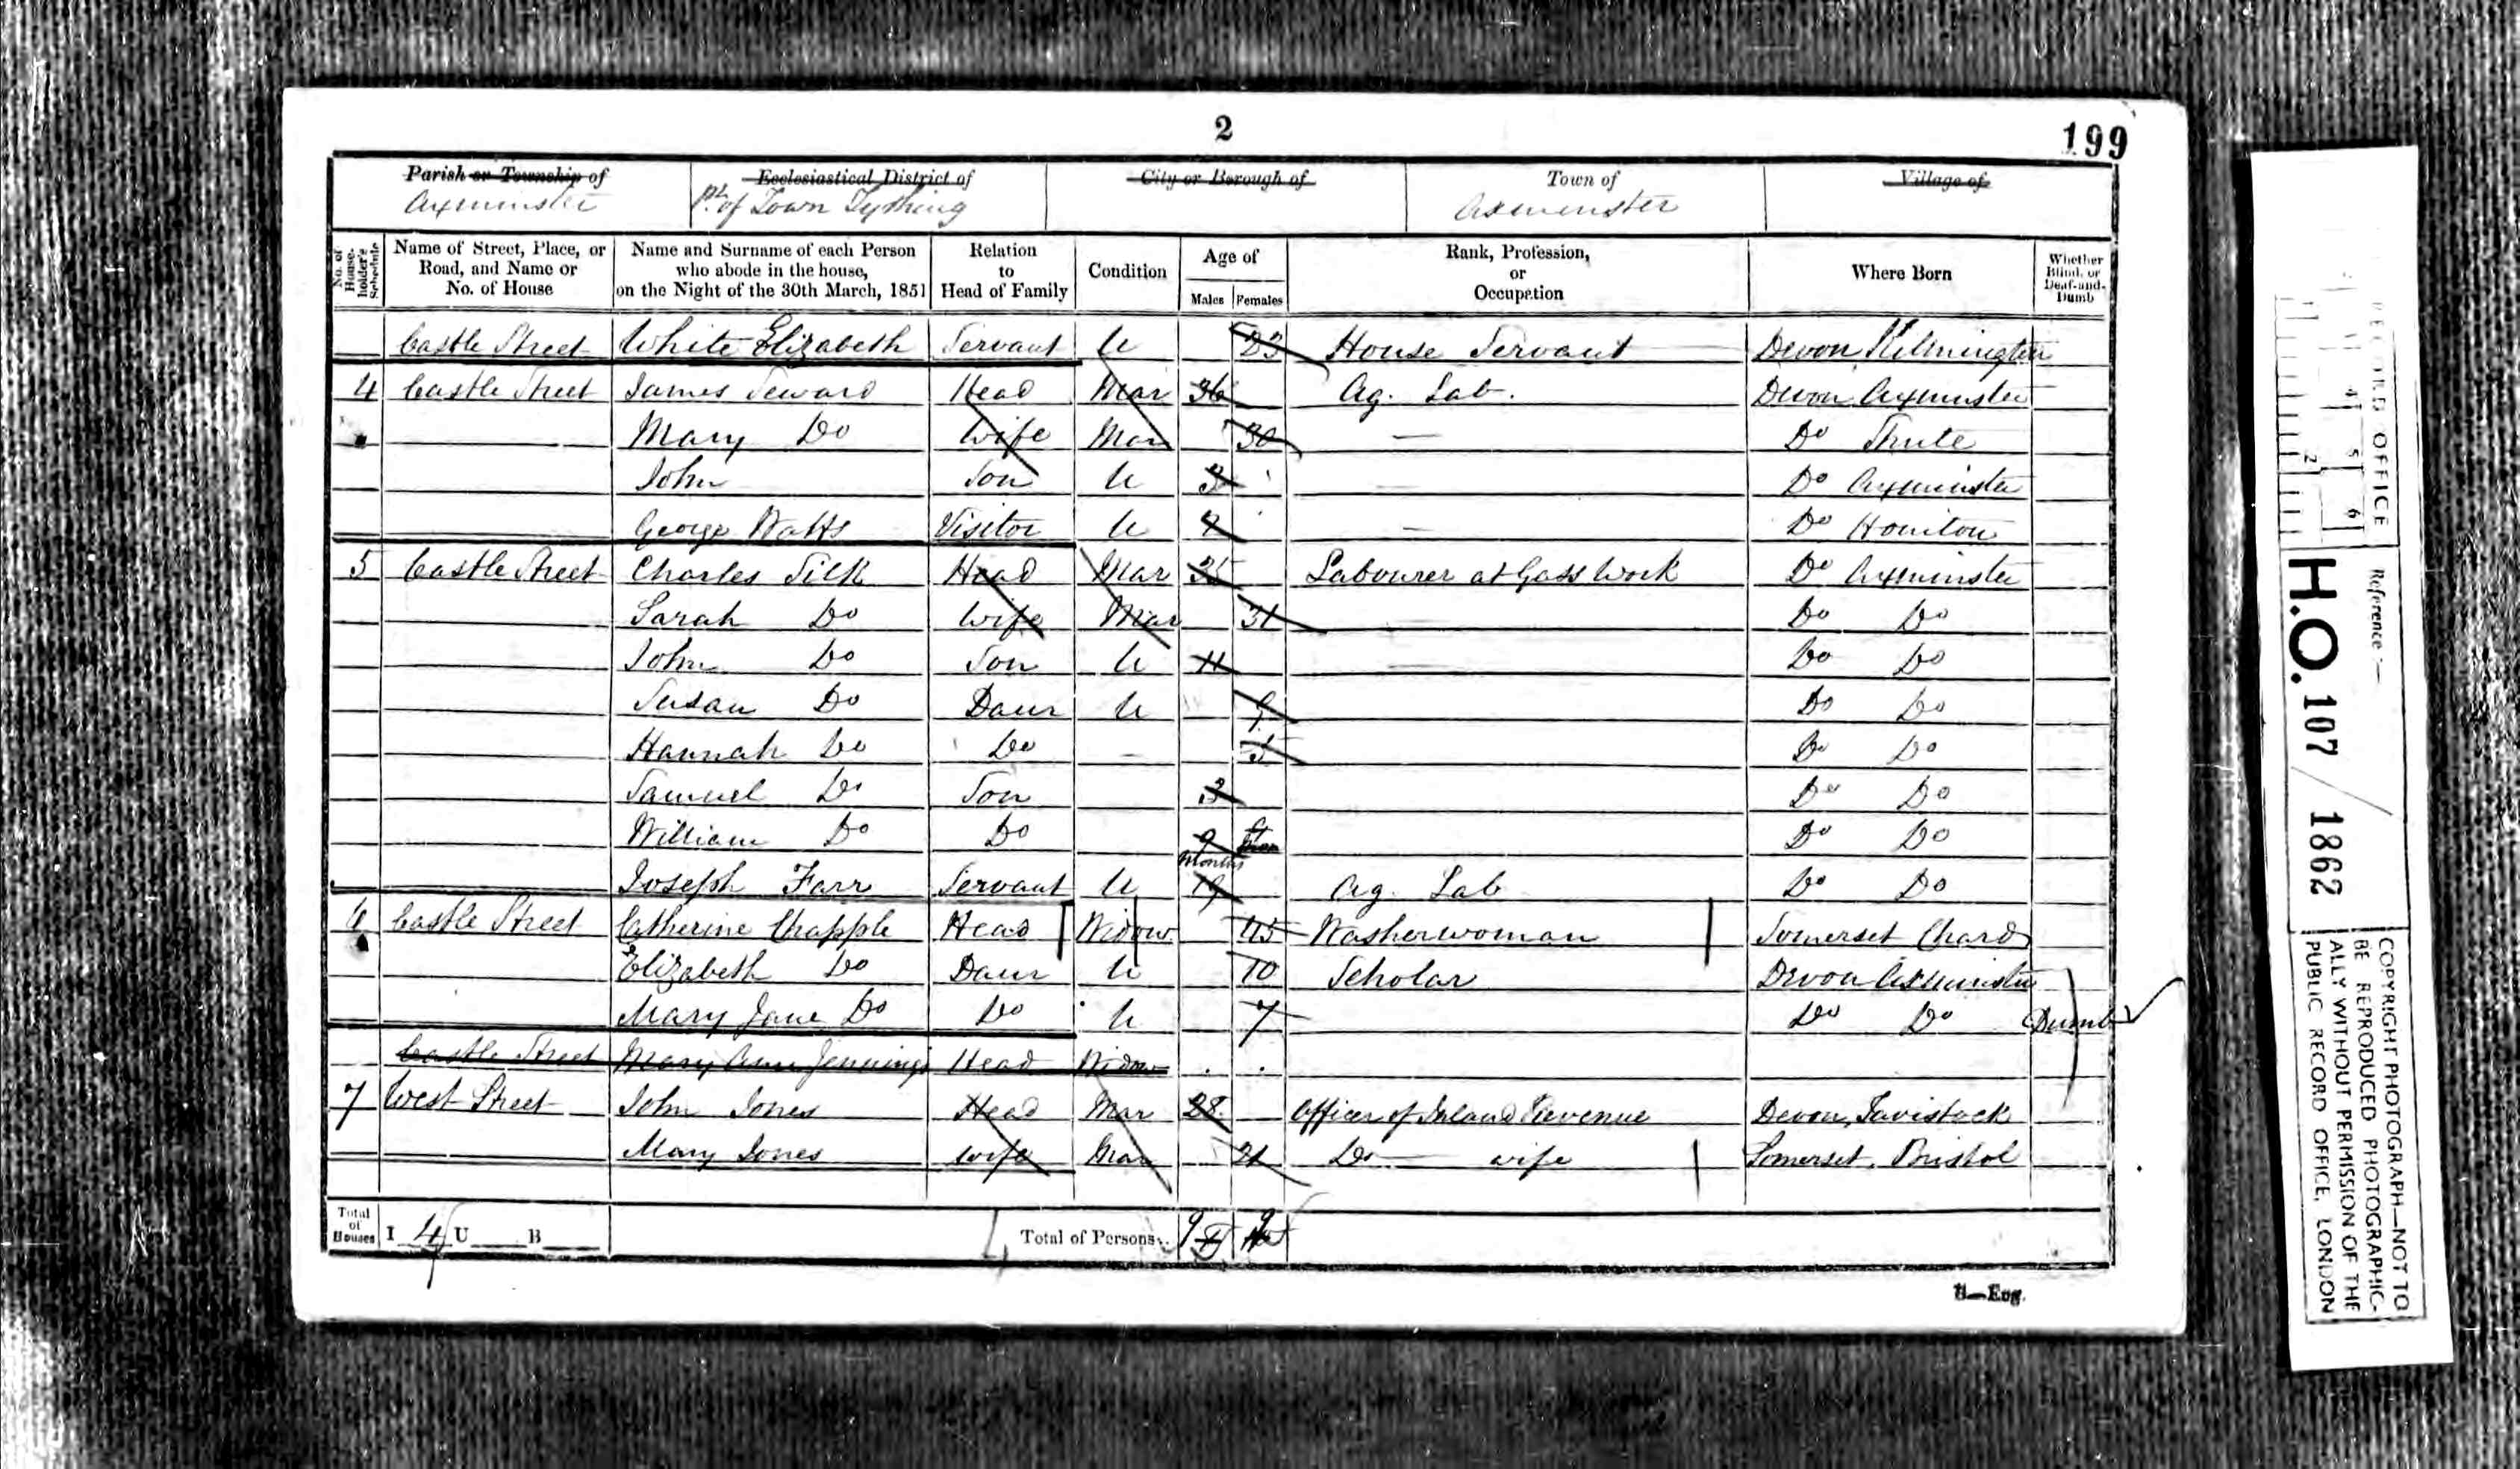 2
199
Parish or Township of
Axminster
Ecclesiastical District of
Pt. of Town Tything
City or Borough of
Town of
Axminster
Village of
No. of House-holder's Schedule
Name of Street, Place, or Road, and Name or No. of House
Name and Surname of each Person who abode in the house, on the Night of the 30th March, 1851
Relation to Head of Family
Condition
Age of
Males
Females
Rank, Profession, or Occupation
Where Born
Whether Blind, or Deaf-and-Dumb
Castle Street White Elizabeth Servant U 23 House Servant Devon Kilmington
4 Castle Street James Seward Head Mar 36 Ag. Lab. Devon Axminster
Mary Do Wife Mar 30 — Do Shute
John Son U 3 — Do Axminster
George Watts Visitor U — Do Honiton
5 Castle Street Charles Silk Head Mar 35 Labourer at Gass Work Do Axminster
Sarah Do Wife Mar 31 Do Do
John Do Son U 11 — Do Do
Susan Do Daur U Do Do
Hannah Do Do — 5 Do Do
Samuel Do Son 3 Do Do
William Do Do 9 Months Do Do
Joseph Farr Servant U 19 Ag. Lab Do Do
6 Castle Street Catherine Chapple Head Widow 45 Washerwoman Somerset Chard
Elizabeth Do Daur U 10 Scholar Devon Axminster
Mary Jane Do Do U 7 Do Do Dumb
Castle Street Mary Ann Jennings Head Widow
7 West Street John Jones Head Mar 28 Officer of Inland Revenue Devon, Tavistock
Mary Jones Wife Mar 21 Do wife Somerset, Bristol
Total of Houses I 4 U B
Total of Persons... 9 9
B—Eng.
RECORD OFFICE
Reference :—
H.O. 107 / 1862
COPYRIGHT PHOTOGRAPH—NOT TO
BE REPRODUCED PHOTOGRAPHIC-
ALLY WITHOUT PERMISSION OF THE
PUBLIC RECORD OFFICE, LONDON